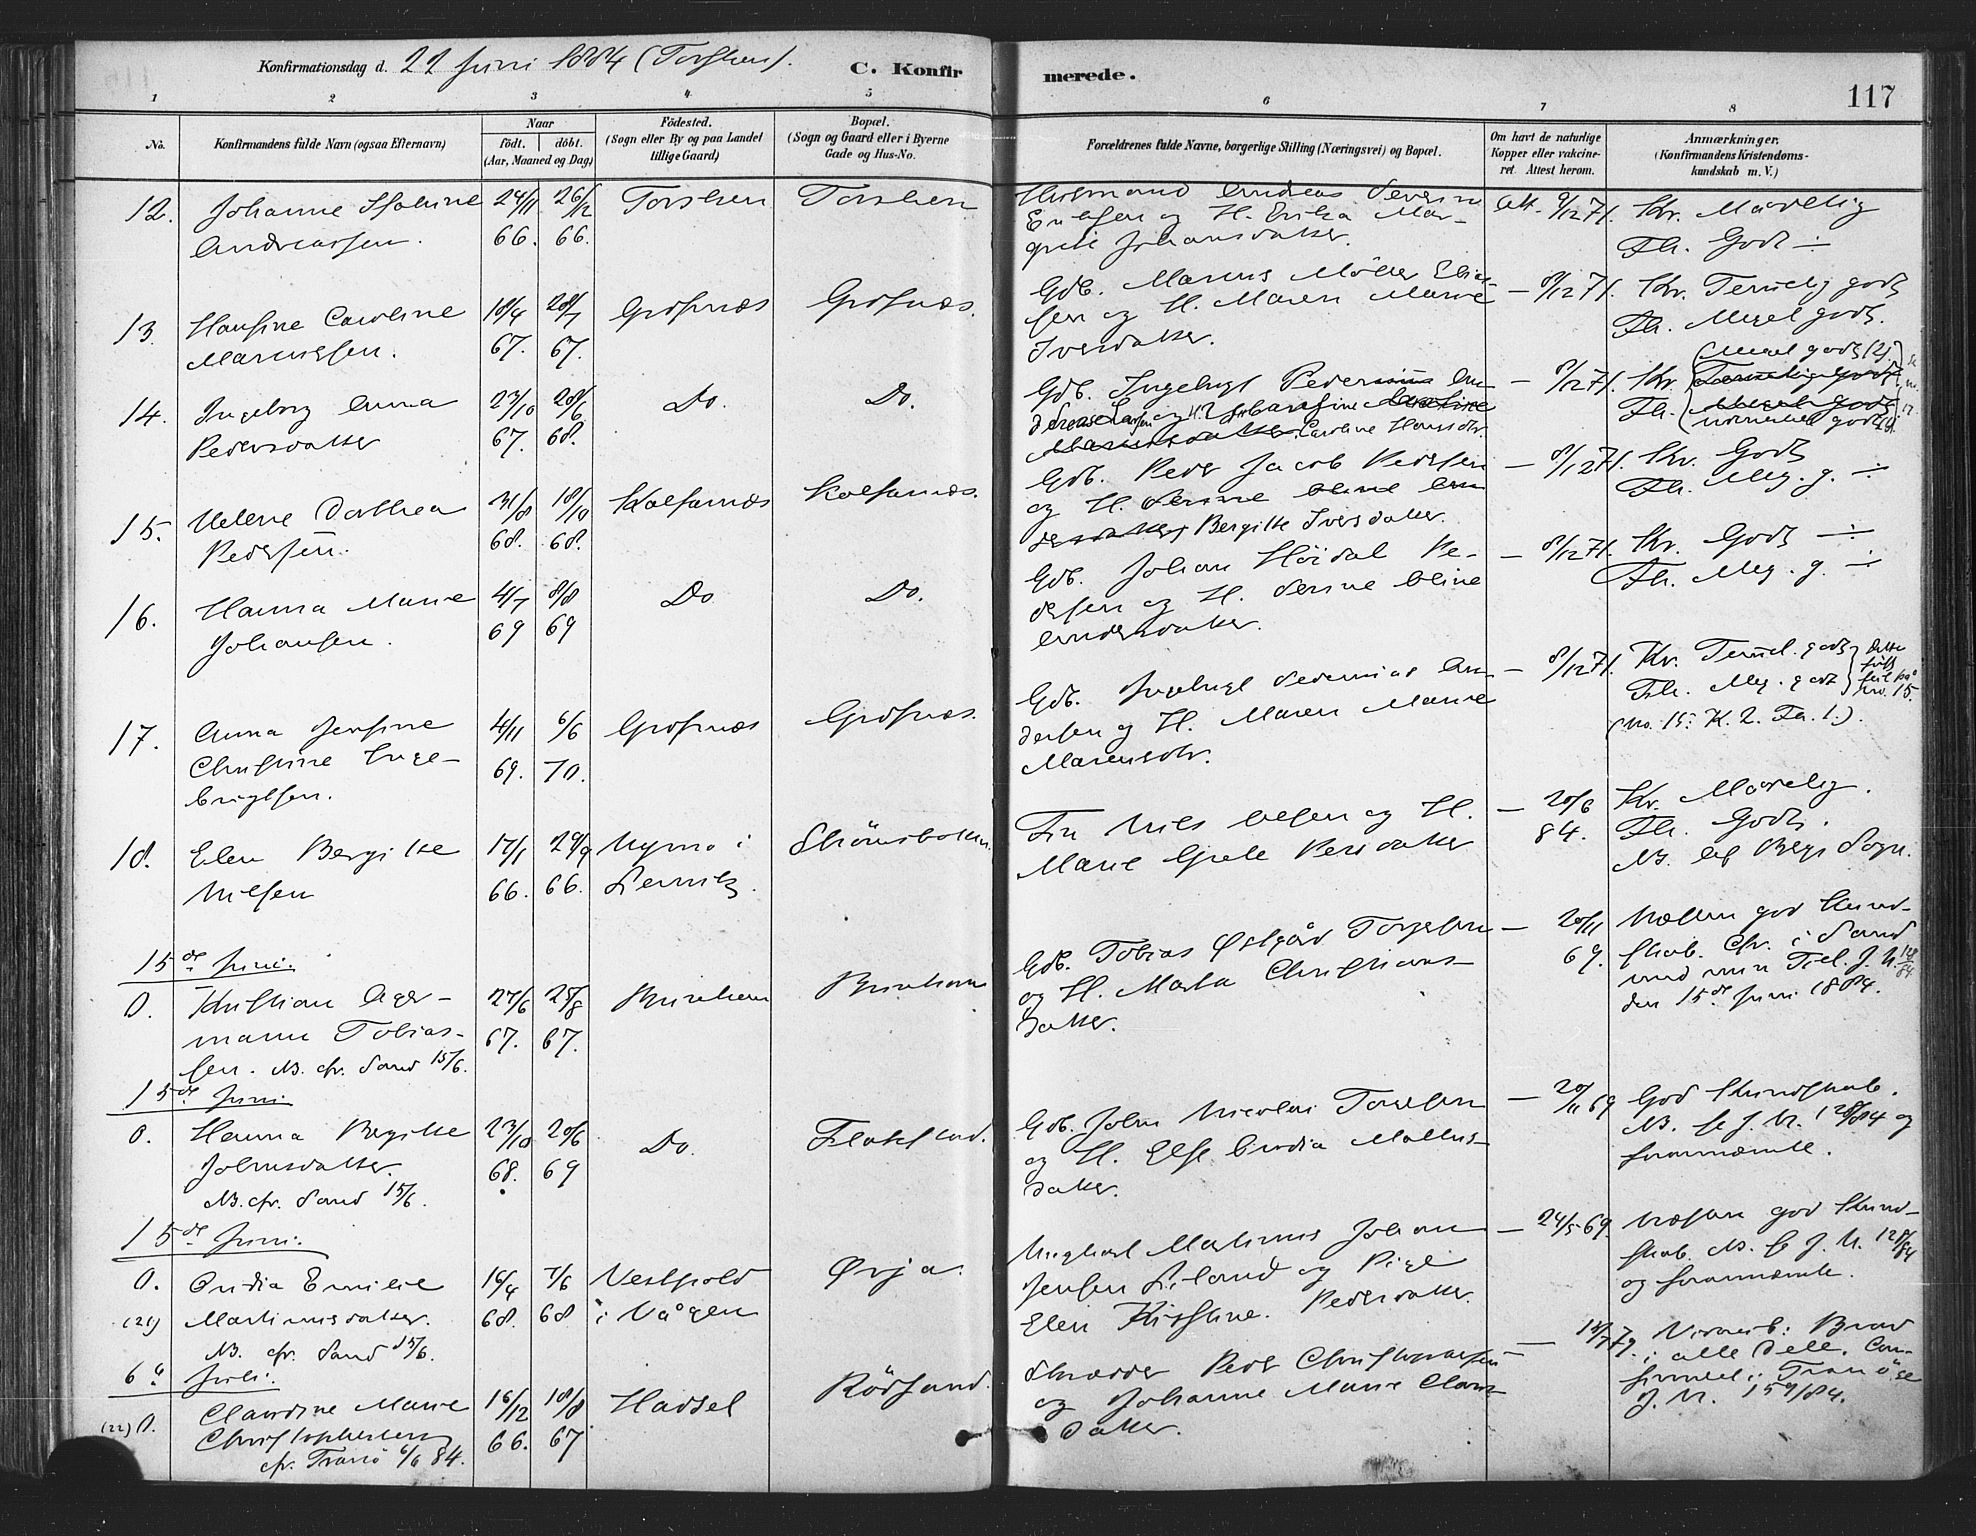 Konfirmationsdag d. 22 Juni 1884 (Torsken).
C. Konfirmerede.
117
1 2 3 4 5 6 7 8
No.
Konfirmandens fulde Navn (ogsaa Efternavn)
Naar
født. døbt.
(Aar, Maaned og Dag)
Fødested.
(Sogn eller By og paa Landet
tillige Gaard)
Bopæl.
(Sogn og Gaard eller i Byerne
Gade og Hus-No.
Forældrenes fulde Navne, borgerlige Stilling (Næringsvei) og Bopæl.
Om havt de naturlige
Kopper eller vakcine-
ret. Attest herom.
Anmærkninger.
(Konfirmandens Kristendoms-
kundskab m. V.)
12. Johanne
Andreassen.
24/11 66. 26/12 66.
Torsken Torsken
Husmand Andreas Severin
og H. Erika Mar-
grete Johansdatter.
Att. 9/12 71.
Kr. Mådelig
Fl. Godt
13. Hansine Caroline
Mariussen.
18/4 67. 28/7 67.
Grdfnæs Grdfnæs.
Gdb. Marius Möller Elias-
sen og H. Maren Marie
Iversdatter.
8/12 71.
Kr. Temelig godt
Fl. Meget godt.
14. Ingeborg Anna
Pedersdatter
23/10 67. 20/6 68.
Do. Do.
Gdb. Ingebrigt
Caroline Hansdtr.
8/12 71.
Kr. Meget godt (2).
Fl. godt
15. Helene Dorthea
Pedersen.
31/8 68. 18/10 68.
Kalfarnæs Kalfarnæs.
Gdb. Peder Jacob Pedersen
og H.
Bergitte Iversdatter.
8/12 71.
Kr. Godt
Fl. Meg. g.
16. Hanna Marie
Johansen.
4/7 69 8/8 69
Do Do.
Gdb. Johan Höidal Pe-
dersen og H. Serine Oline
Andersdatter.
8/12 71.
Kr. Godt
Fl. Meg. g.
17. Anna Jensine
Christine Inge-
brigtsen.
4/11 69. 6/6 70.
Grdfnæs Grdfnæs.
Gdb. Ingebrigt An-
dersen og H. Maren Marie
8/12 71.
Kr. Temel. godt
Fl. Meg. godt
Dette
feil på
no. 15.
(No. 15: K. 2. Fl. 1.).
18. Elen Bergitte
Nilsen
17/1 66. 29/9 66.
i Lenvik. Strömsbotten.
Fin Nils Olsen og H.
Marie Grete Persdatter
20/6 84.
Kr. Mådelig.
Fl. Godt.
NB. Af Bergs Sogn.
15de Juni.
0. Kristian Ager-
mann Tobias-
sen. NB. cfr. Sand 15/6.
27/6 67. 25/8 67.
Gdb. Tobias Østgård Torgersen
og H. Marta Christians-
datter.
20/11 69.
Næsten god Kund-
skab. Cfr. i Sand
med min Tiel. J. N.
den 15de Juni 1884.
15de Juni.
0. Hanna Bergitte
Johnsdatter.
NB. cfr. Sand 15/6.
23/10 68. 20/6 69
Do. Flakstad.
Gdb. John Nicolai Torgersen
og H. Else
datter.
20/11 69
God Kundskab.
NB. J. N. 128/84 og
forannævnte.
15de Juni.
0. (21) Ovidia Emilie
Martinusdatter.
NB. cfr. Sand 15/6.
16/4 68. 7/6 68
Vestpold
i Vågen
Ørja.
Ungkarl Martinus Johan
Jensen og Pige
Elen Kirstine Pedersdatter.
24/5 69.
Næsten god Kund-
skab. NB. J. N. 128/84
og forannævnte.
6te Juli.
(22) 0. Claudine Marie
Christophersen
cfr. Tranö 6/6 84.
16/12 66. 18/8 67
Hadsel Rödsand.
Skrædder Peder Christophersen
og Johanne Marie Claus-
datter.
Brav
i alle Dele. Con-
firmeret i Tranö
J. N. 159/84.